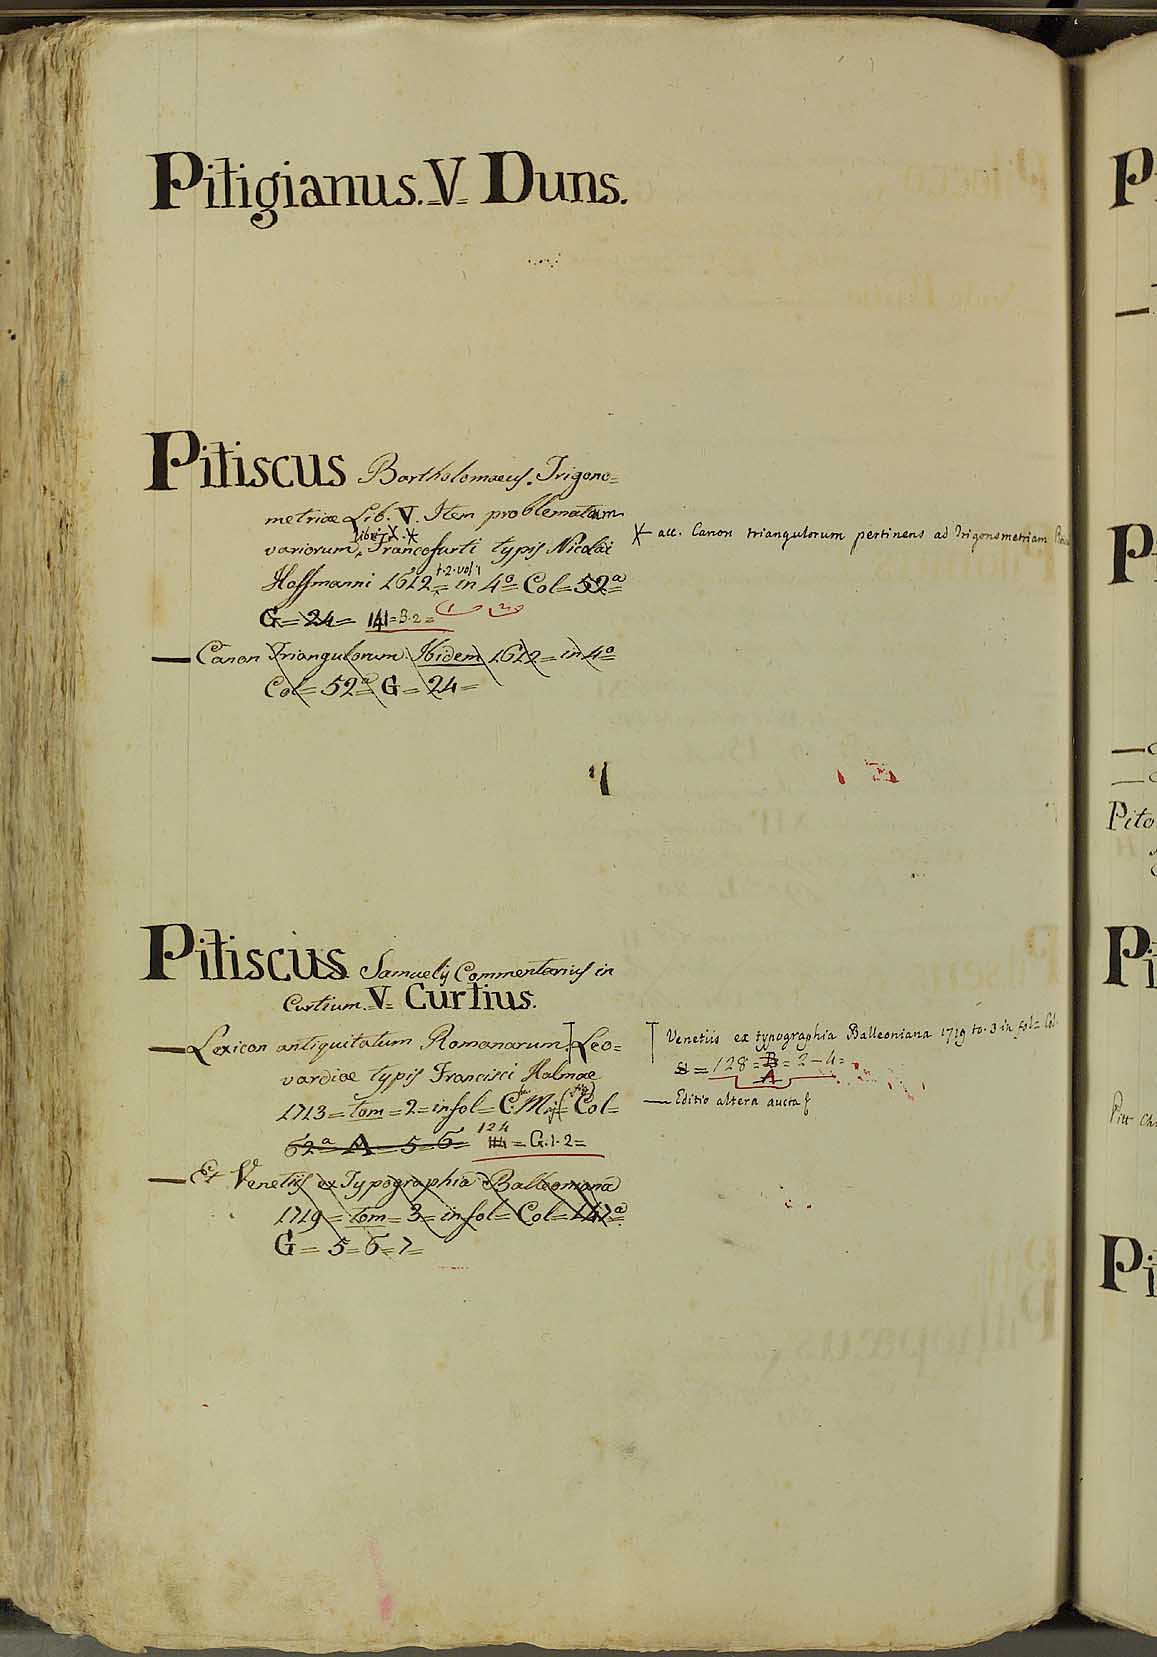 Pitigianus. V. Duns.
Pitiscus Bartholomaeus. Trigono=
metriae Lib. V. Item problematum
variorum Libri X. * Francofurti typis Nicolai
Hoffmanni 1612= t. 2. vol. 1 in 4º Col= 52ª=
G= 24= 141= B. 2=
1 2
* acc. Canon triangulorum pertinens ad Trigonometriam
— Canon Triangulorum. Ibidem 1612= in 4º
Col= 52ª= G= 24=
Pitiscus Samuelis Commentarius in
Curtium. V. Curtius.
— Lexicon antiquitatum Romanarum. Leo=
vardiae typis Francisci Halmae
1713= tom= 2= in fol= C. Maj. Col=
62ª= A= 5= 6= 124 = G. 1. 2=
— Et Venetiis ex Typographia Balleoniana
1719= tom= 3= in fol= Col= 147ª=
G= 5= 6= 7=
Venetiis ex typographia Balleoniana 1719 to. 3 in fol= Col.
= 128= B= 2-4=
A
— Editio altera aucta
P
P
Pito
Pi
Pitt Chr
Pi